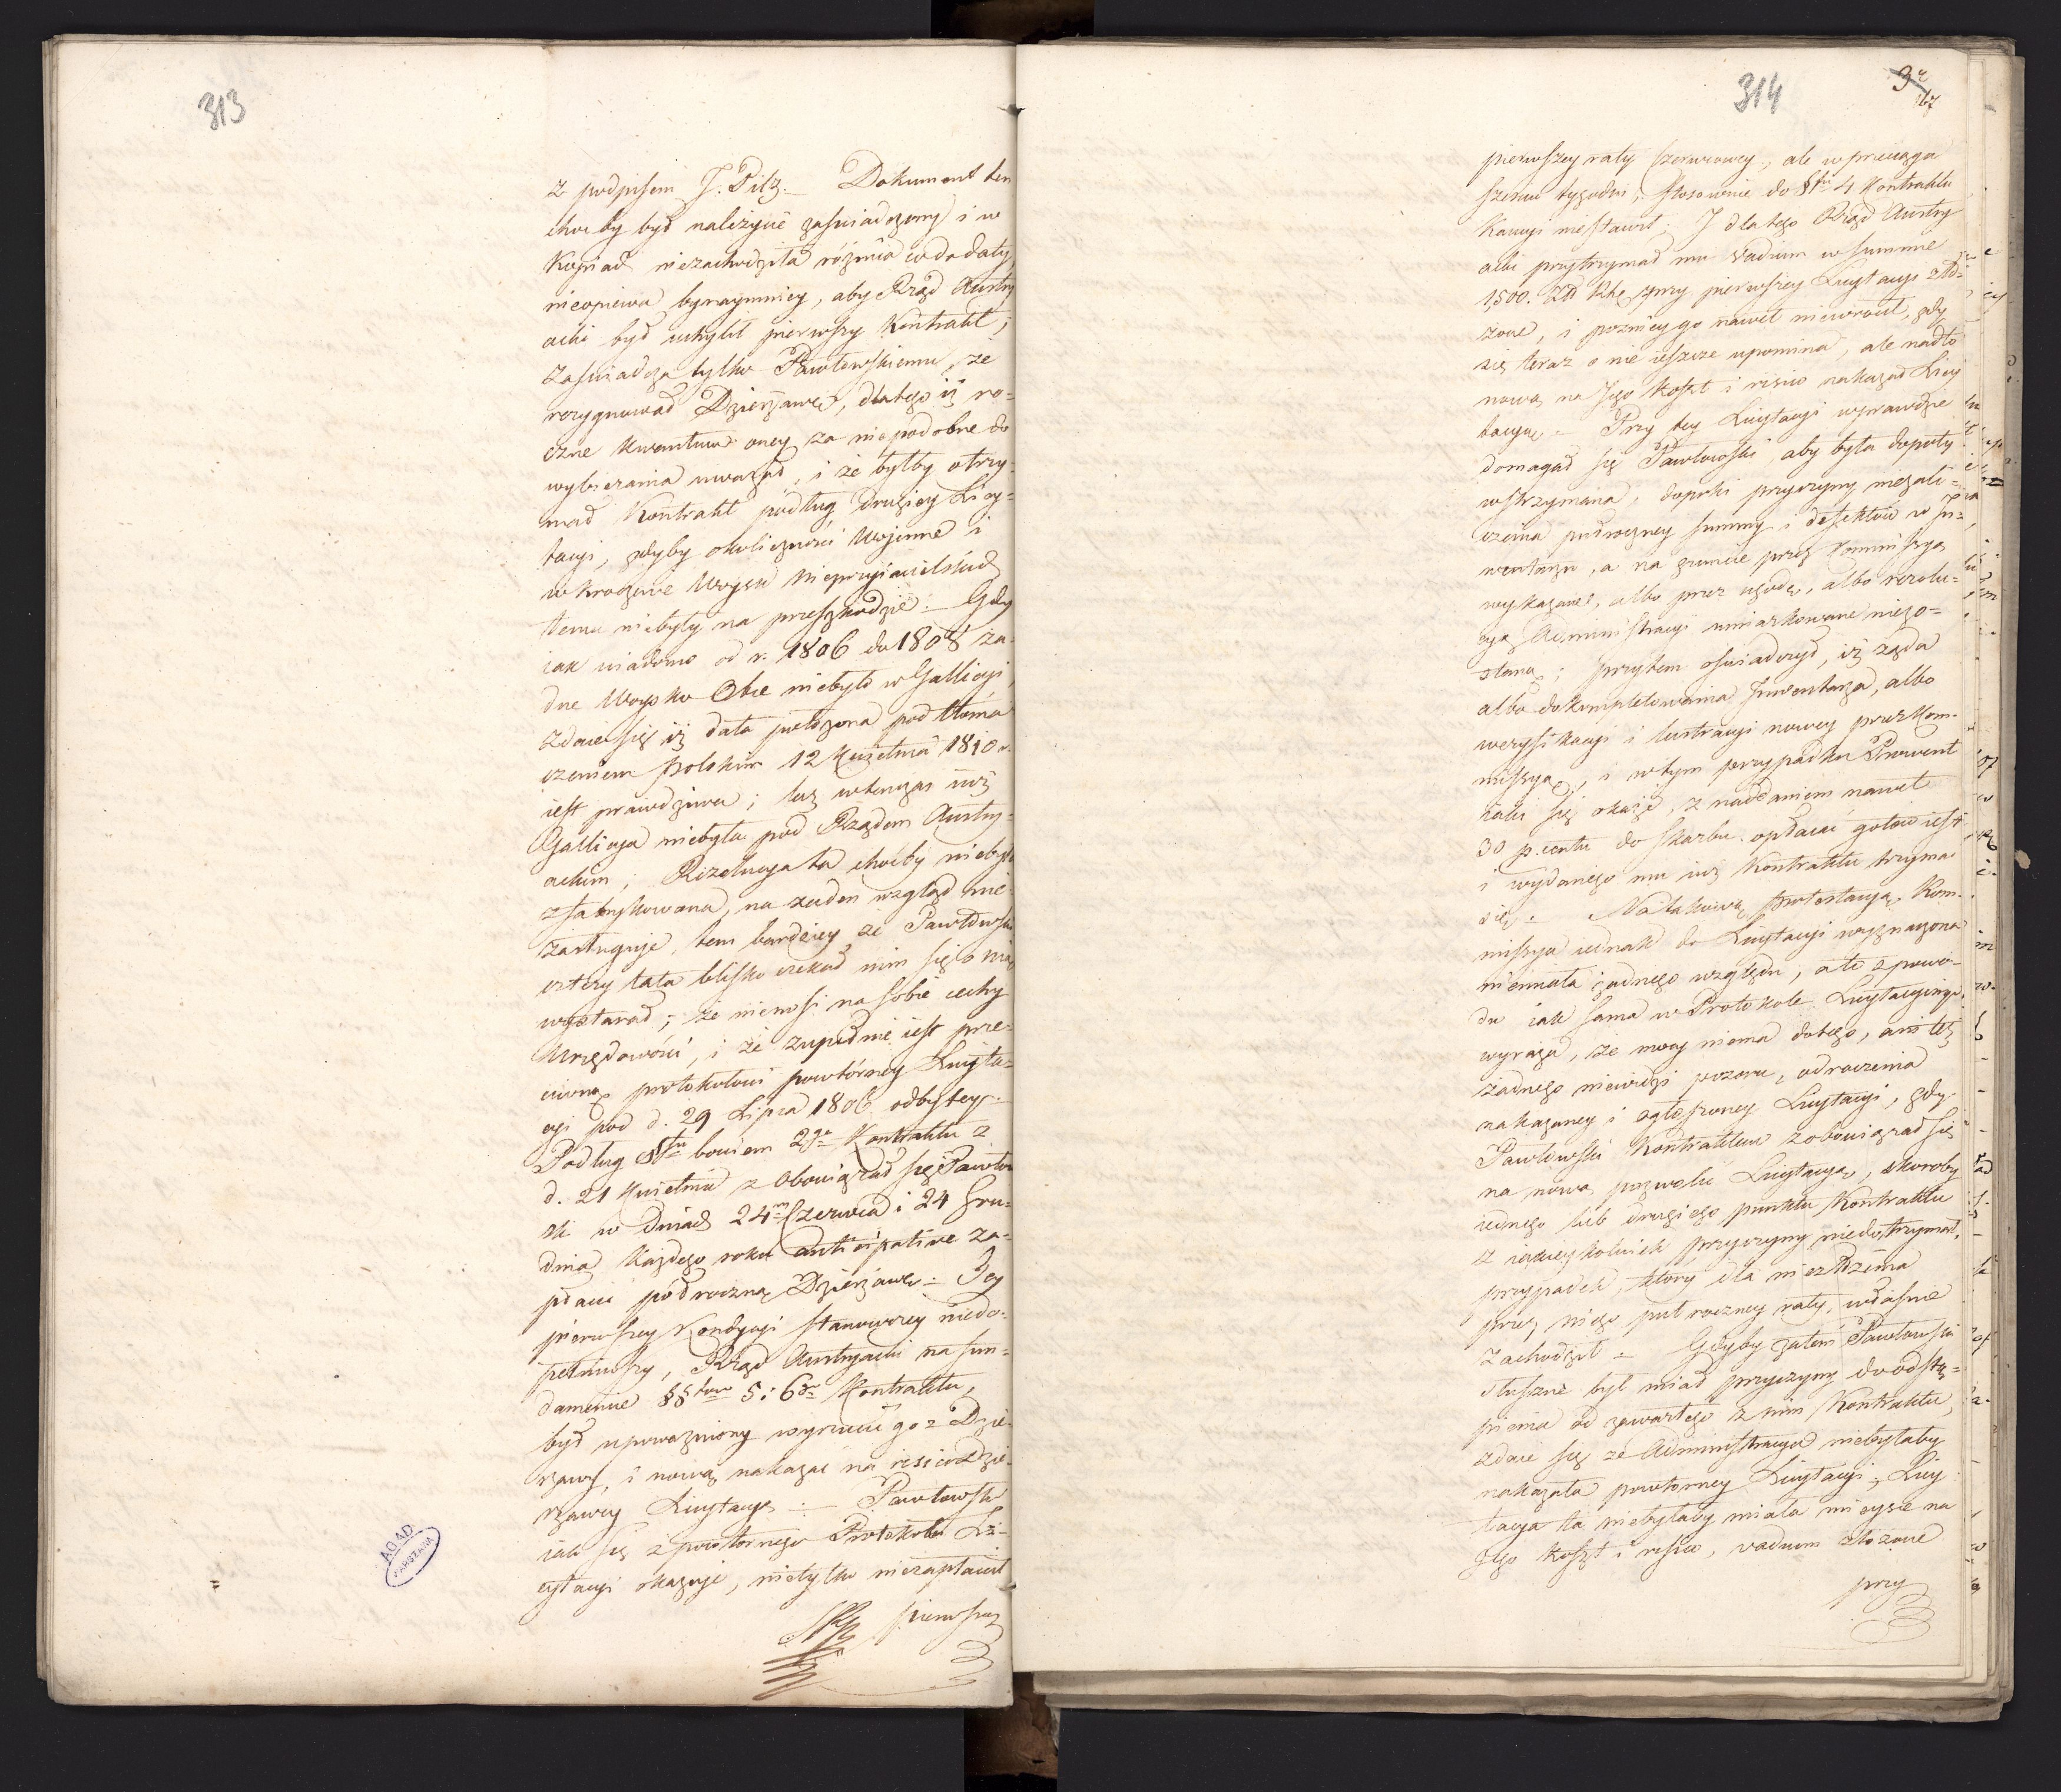 313
z podpisem J. Pilz. — Dokument ten
choć by był należycie zaświadczony i w
Kopiach niezachodziła różnica co do daty
nieopiewa bynaymniey, aby Rząd Austry
acki był uchylił pierwszy Kontrakt;
zaświadcza tylko Pawłowskiemu, że
rezygnował Dzierżawę, dlatego iż ro=
czne kwantum oney za niepodobne do
wybierania uważał, i że byłby otrzy=
mał Kontrakt podług drugiey Licy=
tacyi, gdyby okoliczności Wojenne i
wkroczenie Woysk Nieprzyjacielskich
temu niebyły na przeszkodzie. — Gdy
iak wiadomo od r. 1806 do 1808 ża=
dne Woysko Obce niebyło w Gallicyi,
zdaie się iż data położona pod tłóma
czeniem polskim 12 Kwietnia 1810 r.
iest prawdziwa; lecz wtenczas iuż
Gallicya niebyła pod Rządem Austry=
ackim; Rezolucya ta choćby niebyła
zfabrykowana, na żaden wzgląd nie
zasługuje, tem bardziey że Pawłowski
cztery lata blisko czekał nim się o nią
wystarał; że nienosi na sobie cechy
Urzędowości, i że zupełnie iest prze=
ciwną protokołowi powtórney Licyta=
cyi pod d. 29 Lipca 1806 odbytey. —
Podług §fu bowiem 2go Kontraktu z
d. 21 Kwietnia zobowiązał się Pawłow
ski w dniach 24m Czerwca i 24 Gru=
dnia każdego roku anticipative za=
płacić półroczną Dzierżawę. — Jey
pierwszey Kondycyi stanowczey niedo=
pełniwszy, Rząd Austryacki na fun=
damencie §§fów 5 i 6go Kontraktu,
był upoważniony wyrzucić go z Dzie=
rżawy, i nową nakazać na risico Dzie=
rżawcy Licytacyę. — Pawłowski
iak się z powtórnego Protokołu Li=
cytacyi okazuje, nietylko niezapłacił
pierwszey
AGAD
WARSZAWA
314
167
pierwszey raty Czerwcowey, ale w przeciągu
sześciu tygodni, stosownie do §fu 4 Kontraktu
Kaucyi niestawił; I dlatego Rząd Austry
acki przytrzymał mu Vadium w summie
1,500. ZłR przy pierwszey Licytacyi zło=
żone, i pozniey go nawet niewrócił, gdy
się teraz o nie ieszcze upomina, ale nadto
nową na Jego koszt i risico nakazał Licy
tacyą. — Przy tey Licytacyi wprawdzie
domagał się Pawłowski, aby była dopóty
wstrzymaną, dopóki przyczyny niezali=
czenia półroczney summy i defektów w In=
wentarzu, a na gruncie przez Kommissyą
wykazane, albo przez ugodę, albo rezolu=
cyą Administracyi umiarkowane niezo=
staną; przytem oświadczył, iż żąda
albo dokompletowania Inwentarza, albo
weryfikacyi i lustracyi nowey przez Kom=
missyą, i w tym przypadku Prowent
iaki się okaże, z naddaniem nawet
30 p. centu do skarbu opłacać gotow iest
i wydanego mu iuż Kontraktu trzyma
się. — Na takową protestacyą, Kom=
missya iednak do Licytacyi wyznaczona
niemiała żadnego względu, a to z powo=
du iak sama w Protokole Licytacyinym
wyraża, że mocy niema dotego, ani też
żadnego niewidzi pozoru, odroczenia
nakazaney i ogłoszoney Licytacyi, gdy
Pawłowski Kontraktem zobowiązał się
na nową pozwolić Licytacyą, skoroby
iednego lub drugiego punktu Kontraktu
z iakieykolwiek przyczyny niedotrzymał,
przypadek, który dla niezłożenia
przez niego półroczney raty, właśnie
zachodził. — Gdyby zatem Pawłowski
słuszne był miał przyczyny do odstą=
pienia od zawartego z nim Kontraktu,
zdaie się że Administracya niebyłaby
nakazała powtórney Licytacyi; Licy
tacya ta niebyłaby miała mieysce na
Jego koszt i risico, vadium złożone
przy